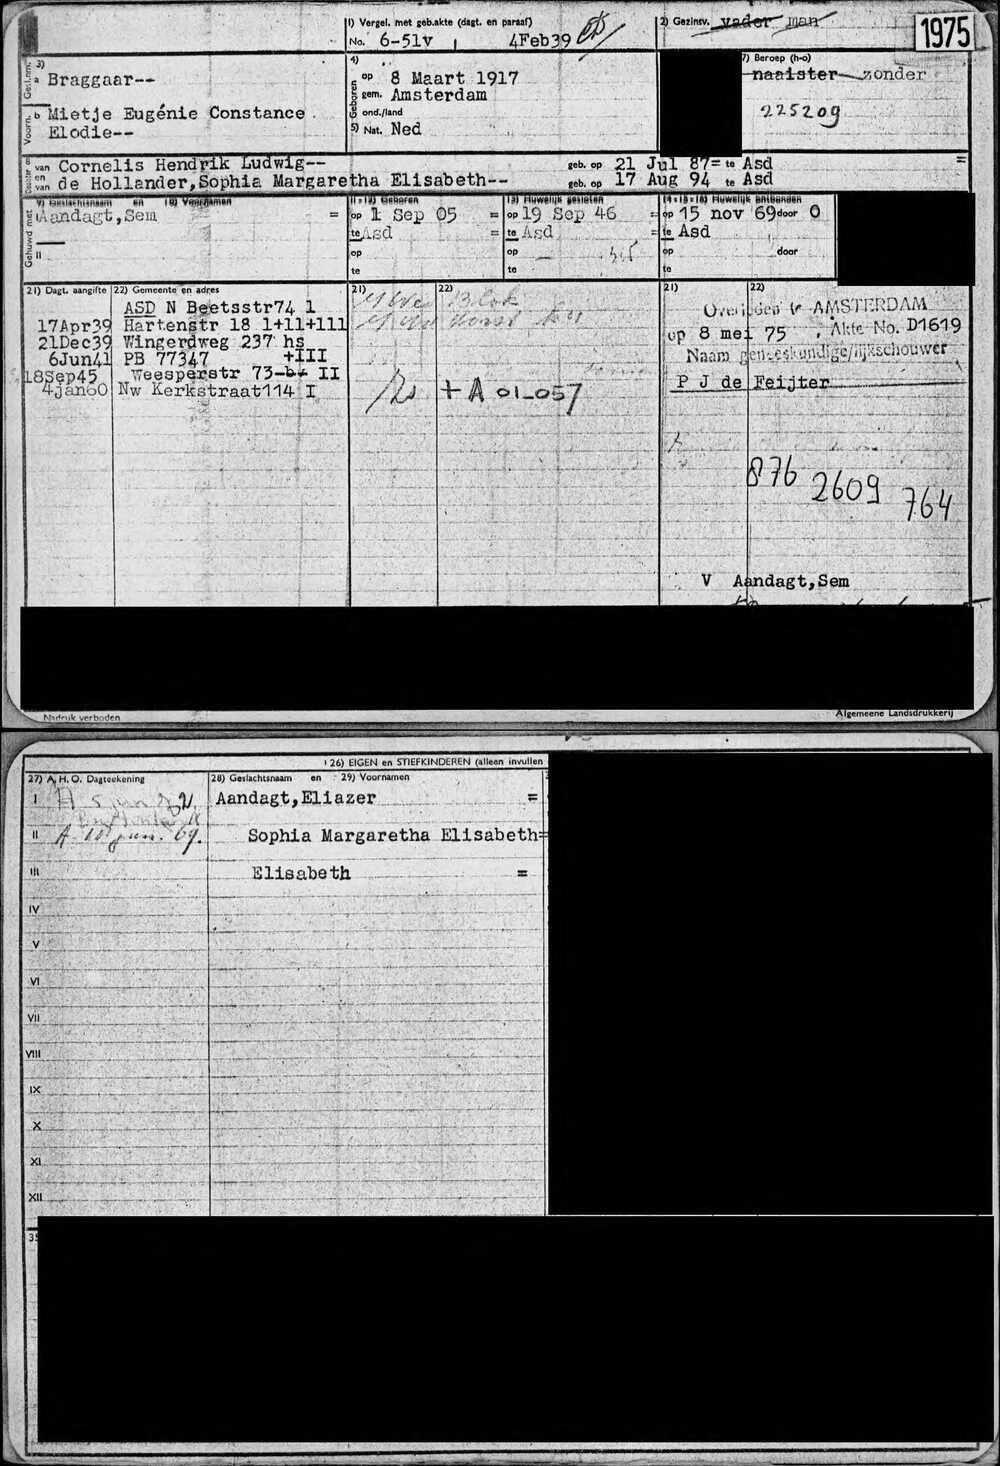 1) Vergel. met geb.akte (dagt. en paraaf)
No. 6-51v 4Feb39
2) Gezinsv. vader man
1975
3)
a Braggaar--
b Mietje Eugénie Constance
Elodie--
4)
Geboren
op 8 Maart 1917
gem. Amsterdam
ond./land
5) Nat. Ned
7) Beroep (h-o)
naaister zonder
225209
van Cornelis Hendrik Ludwig-- geb. op 21 Jul 87= te Asd =
en
van de Hollander,Sophia Margaretha Elisabeth-- geb. op 17 Aug 94 te Asd
Gehuwd met
9) Geslachtsnaam en 10) Voornamen
Aandagt,Sem =
II
11-12) Geboren
op 1 Sep 05 =
te Asd =
op
te
13) Huwelijk gesloten
op 19 Sep 46 =
te Asd =
op
te
14-15-16) Huwelijk ontbonden
op 15 nov 69 door O
te Asd
op door
te
21) Dagt. aangifte 22) Gemeente en adres
ASD N Beetsstr74 1
17Apr39 Hartenstr 18 1+11+111
21Dec39 Wingerdweg 237 hs
6Jun41 PB 77347 +III
18Sep45 Weesperstr 73- II
4jan60 Nw Kerkstraat114 I
21) 22)
+ A 01-057
21) 22)
Overleden te AMSTERDAM
op 8 mei 75 . Akte No. D1619
Naam geneeskundige/lijkschouwer
P J de Feijter
876 2609 764
V Aandagt,Sem
Nadruk verboden
Algemene Landsdrukkerij
26) EIGEN en STIEFKINDEREN (alleen invullen
27) A.H.O. Dagteekening 28) Geslachtsnaam en 29) Voornamen
I Aandagt,Eliazer =
II Sophia Margaretha Elisabeth=
III Elisabeth =
IV
V
VI
VII
VIII
IX
X
XI
XII